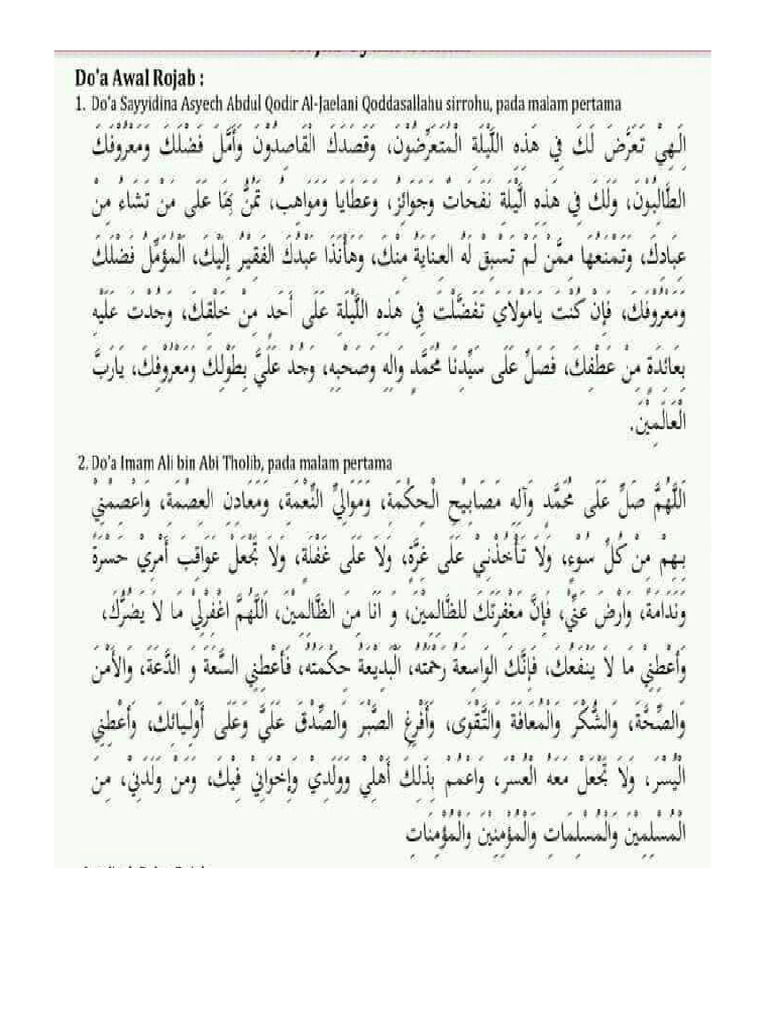 Do'a Awal Rojab :
1. Do'a Sayyidina Asyech Abdul Qodir Al-Jaelani Qoddasallahu sirrohu, pada malam pertama
اِلَـهِيْ تَعَرَّضَ لَكَ فِي هَذِهِ اللَّيْلَةِ الْمُتَعَرِّضُوْنَ، وَقَصَدَكَ الْقَاصِدُوْنَ وَأَمَّلَ فَضْلَكَ وَمَعْرُوْفَكَ
الطَّالِبُوْنَ، وَلَكَ فِي هَذِهِ الَّيْلَةِ نَفَحَاتٌ وَجَوَائِزُ، وَعَطَايَا وَمَوَاهِبُ، تَمُنُّ بِهَا عَلَى مَنْ تَشَاءُ مِنْ
عِبَادِكَ، وَتَمْنَعُهَا مِمَّنْ لَمْ تَسْبِقْ لَهُ العِنَايَةُ مِنْكَ، وَهَأَنَذَا عَبْدُكَ الفَقِيْرُ إِلَيْكَ، اَلْمُؤَمِّلُ فَضْلَكَ
وَمَعْرُوْفَكَ، فَإِنْ كُنْتَ يَامَوْلاَيَ تَفَضَّلْتَ فِي هَذِهِ اللَّيْلَةِ عَلَى أَحَدٍ مِنْ خَلْقِكَ، وَجُدْتَ عَلَيْهِ
بِعَائِدَةٍ مِنْ عَطْفِكَ، فَصَلِّ عَلَى سَيِّدِنَا مُحَمَّدٍ وَالِهِ وَصَحْبِهِ، وَجُدْ عَلَيَّ بِطَوْلِكَ وَمَعْرُوْفِكَ، يَارَبَّ
الْعَالَمِيْنَ.
2. Do'a Imam Ali bin Abi Tholib, pada malam pertama
اَللَّهُمَّ صَلِّ عَلَى مُحَمَّدٍ وَآلِهِ مَصَابِيْحِ الْحِكْمَةِ، وَمَوَالِيِّ النِّعْمَةِ، وَمَعَادِنِ العِصْمَةِ، وَاعْصِمْنِيْ
بِهِمْ مِنْ كُلِّ سُوْءٍ، وَلاَ تَأْخُذْنِيْ عَلَى غِرَّةٍ، وَلاَ عَلَى غَفْلَةٍ، وَلاَ تَجْعَلْ عَوَاقِبَ أَمْرِيْ حَسْرَةً
وَنَدَامَةً، وَارْضَ عَنِّيْ، فَإِنَّ مَغْفِرَتَكَ لِلظَّالِمِيْنَ، وَ اَنَا مِنَ الظَّالِمِيْنَ، اَللَّهُمَّ اغْفِرْلِيْ مَا لاَ يَضُرُّكَ،
وَأَعْطِنِيْ مَا لاَ يَنْفَعُكَ، فَإِنَّكَ الوَاسِعَةُ رَحْمَتُهُ، اَلْبَدِيْعَةُ حِكْمَتُهُ، فَأَعْطِنِي السَّعَةَ وَ الدَّعَةَ، وَالأَمْنَ
وَالصِّحَّةَ، وَالشُّكْرَ وَالْمُعَافَةَ وَالتَّقْوَى، وَأَفْرِغِ الصَّبْرَ وَالصِّدْقَ عَلَيَّ وَعَلَى أَوْلِيَائِكَ، وَأَعْطِنِي
الْيُسْرَ، وَلاَ تَجْعَلْ مَعَهُ الْعُسْرَ، وَاعْمُمْ بِذَلِكَ أَهْلِيْ وَوَلَدِيْ وَإِخْوَانِيْ فِيْكَ، وَمَنْ وَلَدَنِيْ، مِنَ
الْمُسْلِمِيْنَ وَالْمُسْلِمَاتِ وَالْمُؤْمِنِيْنَ وَالْمُؤْمِنَاتِ